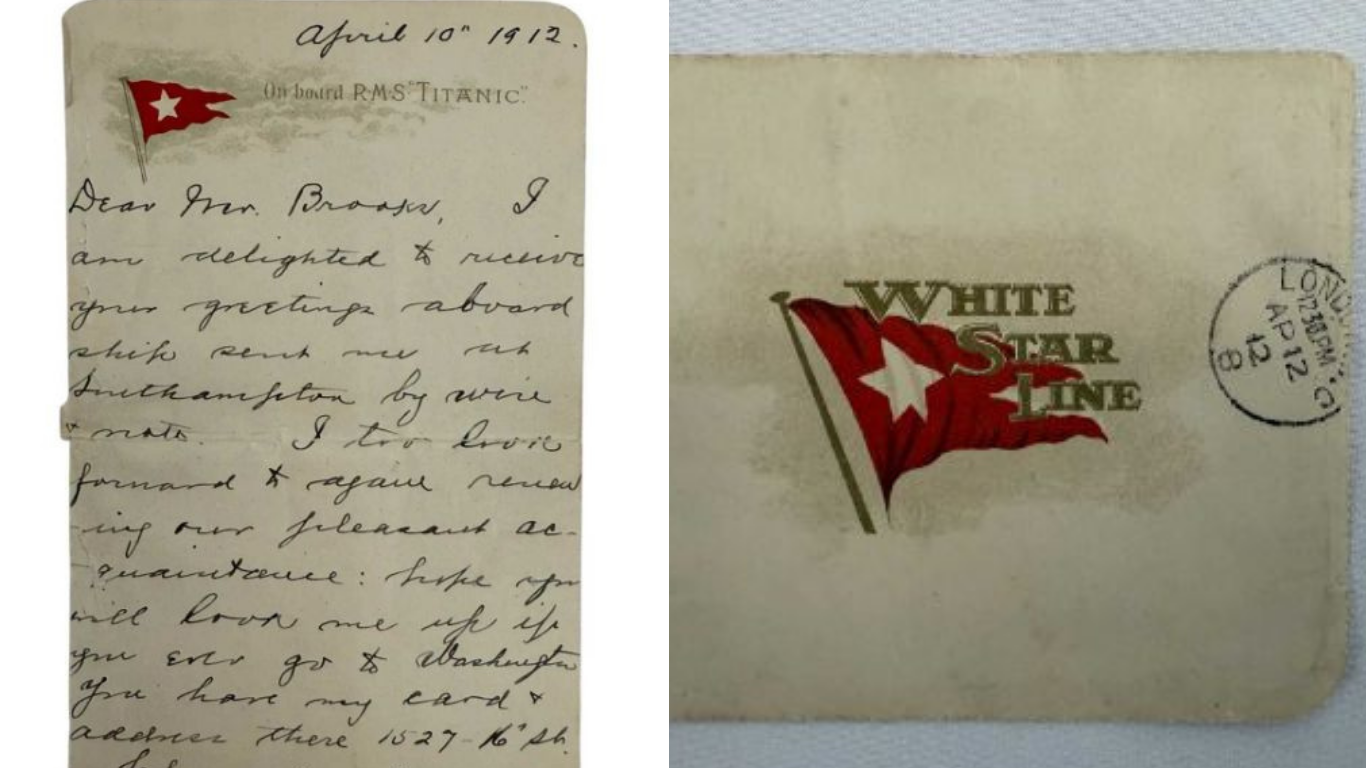 April 10" 1912.
On board R.M.S "TITANIC".
Dear Mr. Brooks, I
am delighted to receive
your greetings aboard
ship sent me at
Southampton by wire
& note. I too look
forward to again renew
-ing our pleasant ac-
quaintance: hope you
will look me up if
you ever go to Washington
You have my card &
address there 1527-16" St.
WHITE
STAR
LINE
LOND
12.30PM
AP 12
12
8